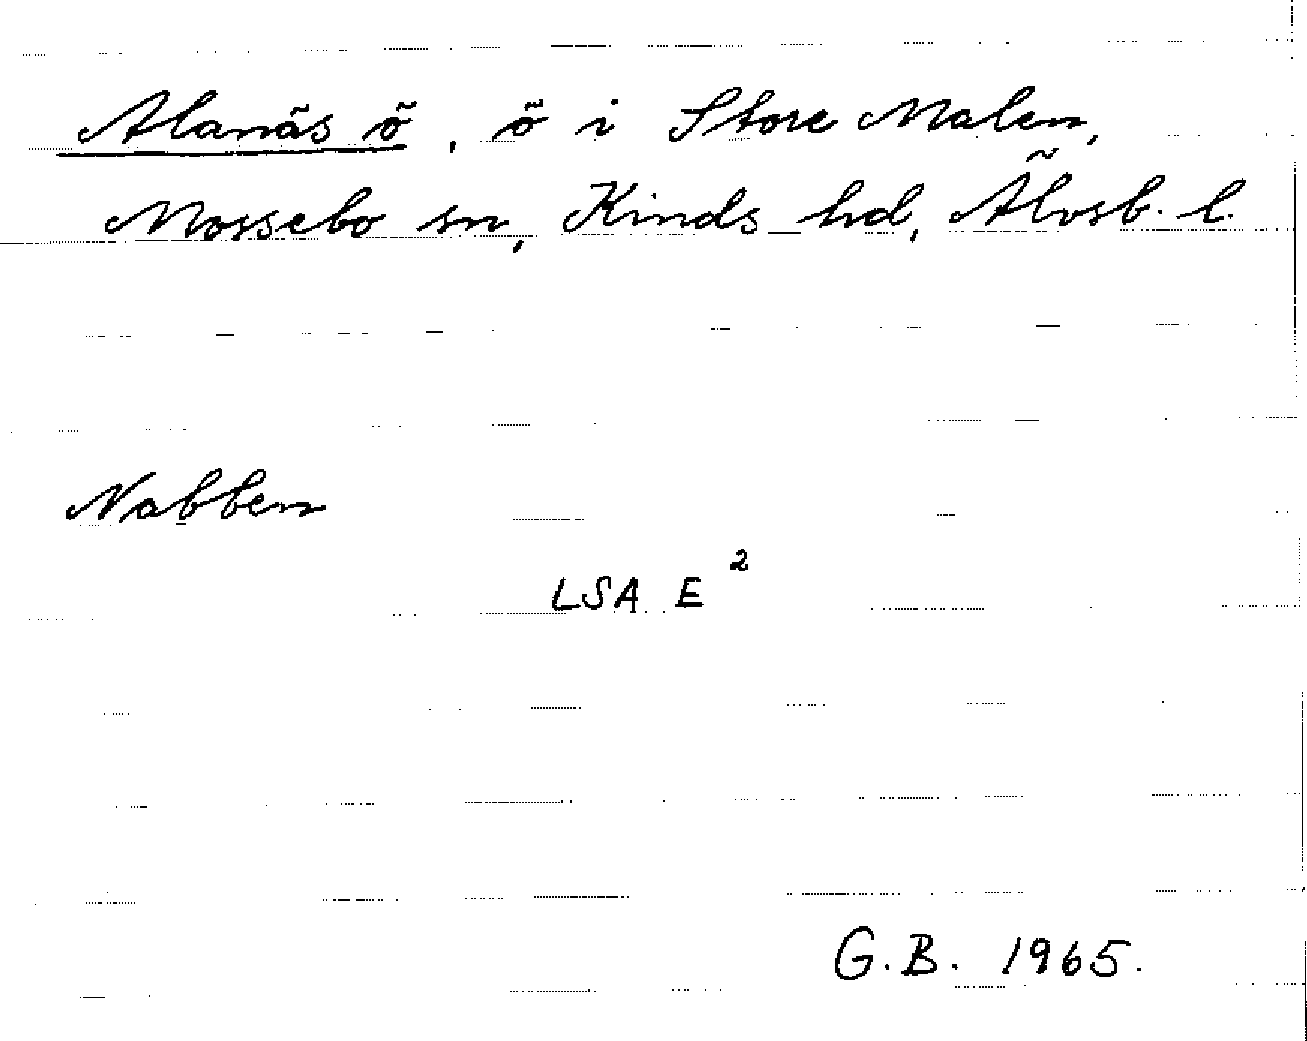 Alanäs ö, ö i Store Malen,
Mossebo sn, Kinds hd, Älvsb. l.
Nabben
LSA E²
G.B. 1965.